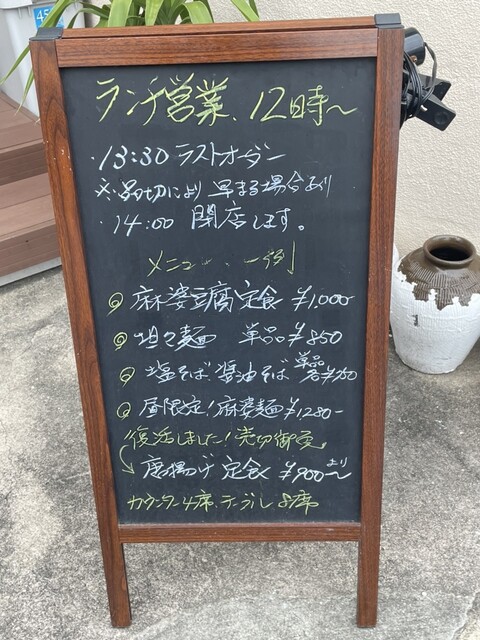 ランチ営業、12時〜
・13:30 ラストオーダー
※品切により早まる場合あり
・14:00 閉店します。
メニュー 一例
◎麻婆豆腐定食 ¥1,000-
◎坦々麺 単品¥850
◎塩そば、醤油そば 単品各¥750
◎昼限定!麻婆麺¥1280-
復活しました!売切御免
唐揚げ定食 ¥900〜より
カウンター4席、テーブル8席